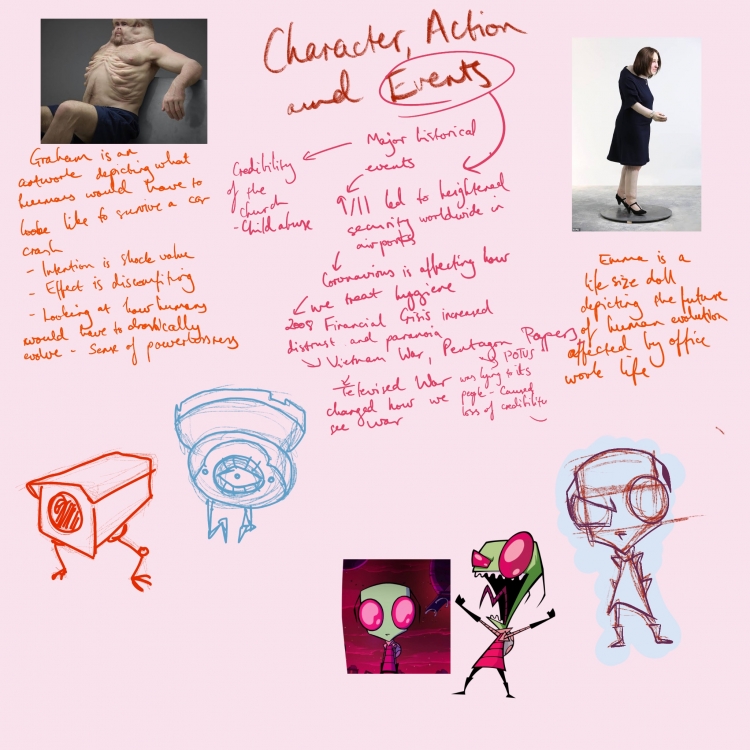 Character, Action
and Events
Graham is an
artwork depicting what
humans would have to
look like to survive a car
crash
- Intention is shock value
- Effect is discomfiting
- Looking at how humans
would have to drastically
evolve - Sense of powerlessness
Major historical
events
Credibility
of the
church
- Child abuse
9/11 led to heightened
security worldwide in
airports
Coronavirus is affecting how
we treat hygiene
2008 Financial Crisis increased
distrust and paranoia
Vietnam War, Pentagon Papers
POTUS
was lying to its
people - Caused
loss of credibility
Televised War
changed how we
see war
Emma is a
life size doll
depicting the future
of human evolution
affected by office
work life